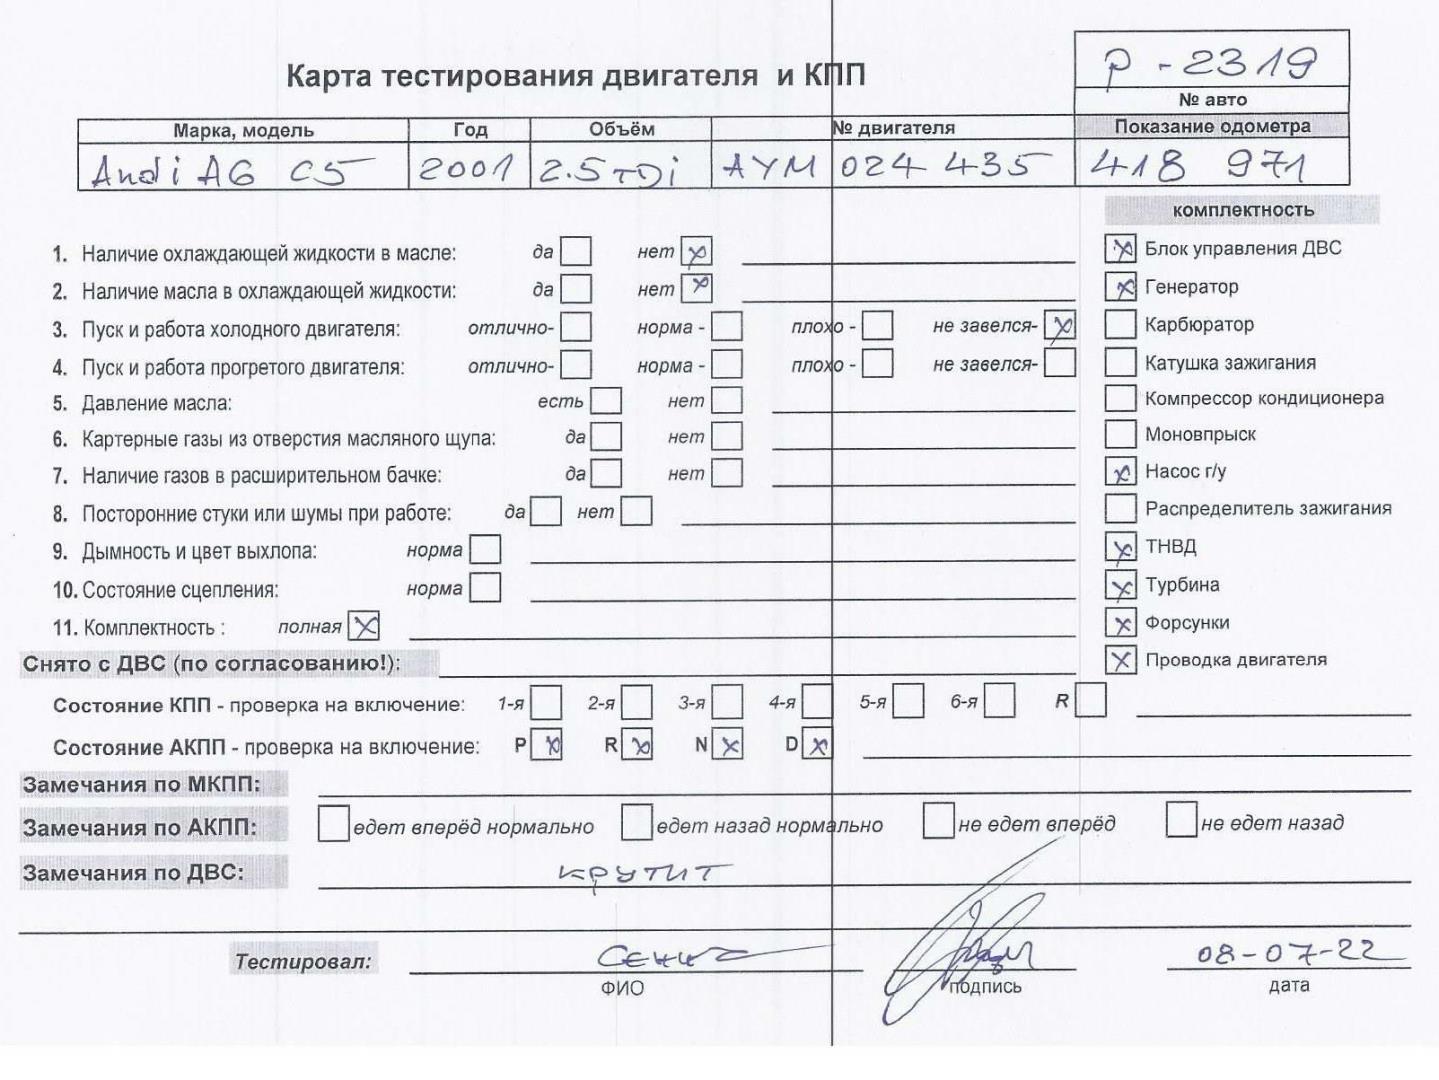 Р - 2319
Карта тестирования двигателя и КПП
№ авто
Марка, модель Год Объём № двигателя Показание одометра
Audi A6 C5 2001 2.5 TDi AYM 024 435 418 971
комплектность
1. Наличие охлаждающей жидкости в масле: да нет
Блок управления ДВС
2. Наличие масла в охлаждающей жидкости: да нет
Генератор
3. Пуск и работа холодного двигателя: отлично- норма - плохо - не завелся-
Карбюратор
4. Пуск и работа прогретого двигателя: отлично- норма - плохо - не завелся-
Катушка зажигания
5. Давление масла: есть нет
Компрессор кондиционера
6. Картерные газы из отверстия масляного щупа: да нет
Моновпрыск
7. Наличие газов в расширительном бачке: да нет
Насос г/у
8. Посторонние стуки или шумы при работе: да нет
Распределитель зажигания
9. Дымность и цвет выхлопа: норма
ТНВД
10. Состояние сцепления: норма
Турбина
11. Комплектность : полная
Форсунки
Снято с ДВС (по согласованию!):
Проводка двигателя
Состояние КПП - проверка на включение: 1-я 2-я 3-я 4-я 5-я 6-я R
Состояние АКПП - проверка на включение: P R N D
Замечания по МКПП:
Замечания по АКПП: едет вперёд нормально едет назад нормально не едет вперёд не едет назад
Замечания по ДВС: крутит
Тестировал: 08-07-22
ФИО подпись дата